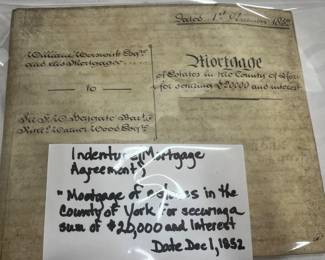 Dated 1st December 1852
William Esq.re
and his Mortgagee
to
Sir Bart
Esq.re
Mortgage
of Estates in the County of York
for securing £20000 and interest
Indenture ("Mortgage
Agreement")
"Mortgage of estates in the
County of York for securing a
sum of $20,000 and Interest
Date Dec 1, 1852